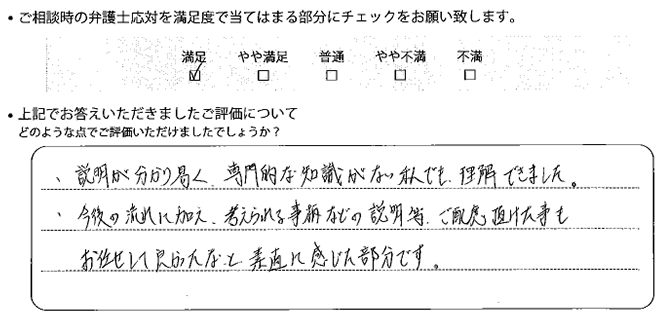 ・ご相談時の弁護士応対を満足度で当てはまる部分にチェックをお願い致します。
満足 やや満足 普通 やや不満 不満
☑ □ □ □ □
・上記でお答えいただきましたご評価について
どのような点でご評価いただけましたでしょうか？
、説明が分かり易く、専門的な知識がない私でも、理解できました。
、今後の流れに加え、考えられる事柄などの説明等、ご配慮頂けた事も
お任せして良かったなと素直に感じた部分です。